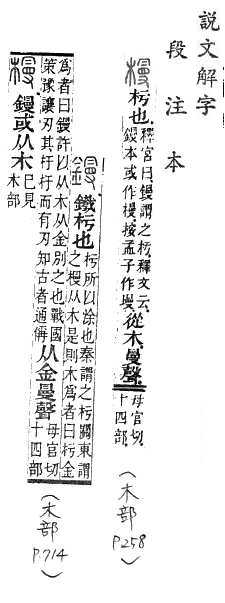 說文解字
段注本
槾 杇也
釋宮曰鏝謂之杇釋文云
鏝本或作槾按孟子作墁
從木曼聲
母官切
十四部
(木部 P.258)
鏝 鐵杇也
杇所㠯涂也秦謂之杇關東謂
之槾从木是則木爲者曰杇金
爲者曰鏝許㠯从木从金別之也戰國
策豫讓刃其杅杅而有刃知古者通偁
从金曼聲
母官切
十四部
槾 鏝或从木
已見
木部
(木部 P.714)